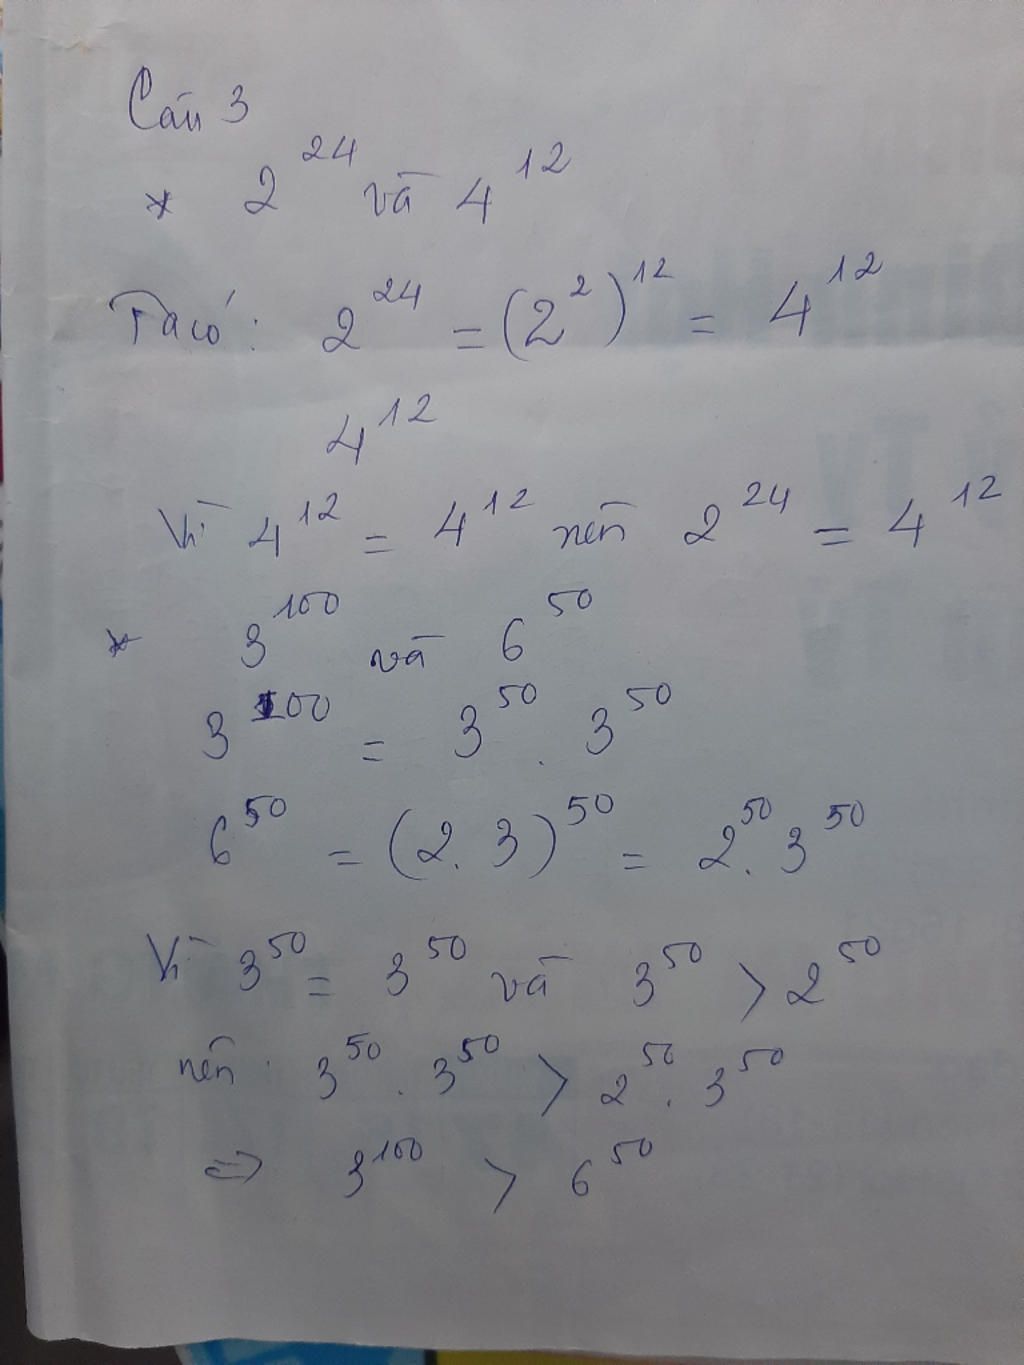 Câu 3
* 2^24 và 4^12
Ta có: 2^24 = (2^2)^12 = 4^12
4^12
Vì 4^12 = 4^12 nên 2^24 = 4^12
* 3^100 và 6^50
3^100 = 3^50 . 3^50
6^50 = (2.3)^50 = 2^50 . 3^50
Vì 3^50 = 3^50 và 3^50 > 2^50
nên 3^50 . 3^50 > 2^50 . 3^50
=> 3^100 > 6^50